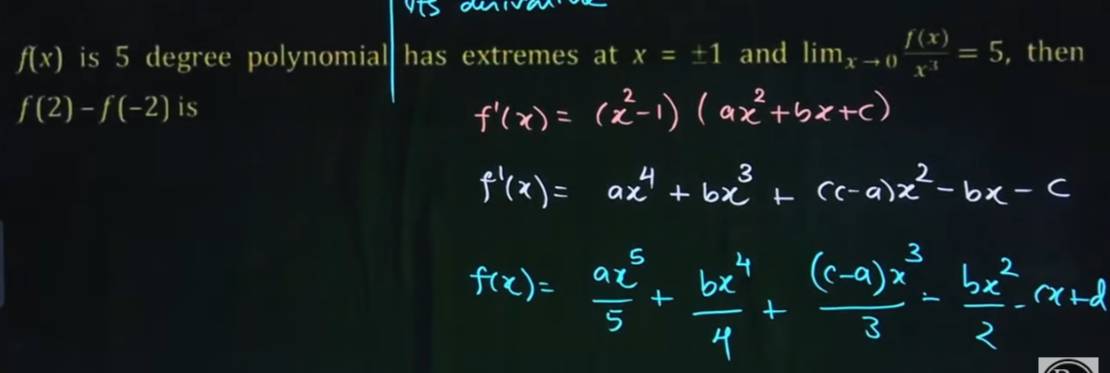 its derivative
f(x) is 5 degree polynomial has extremes at x = ±1 and lim x→0 f(x)/x³ = 5, then
f(2) – f(–2) is
f'(x) = (x²-1) (ax²+bx+c)
f'(x) = ax⁴ + bx³ + (c-a)x² - bx - c
f(x) = ax⁵/5 + bx⁴/4 + (c-a)x³/3 - bx²/2 - cx+d